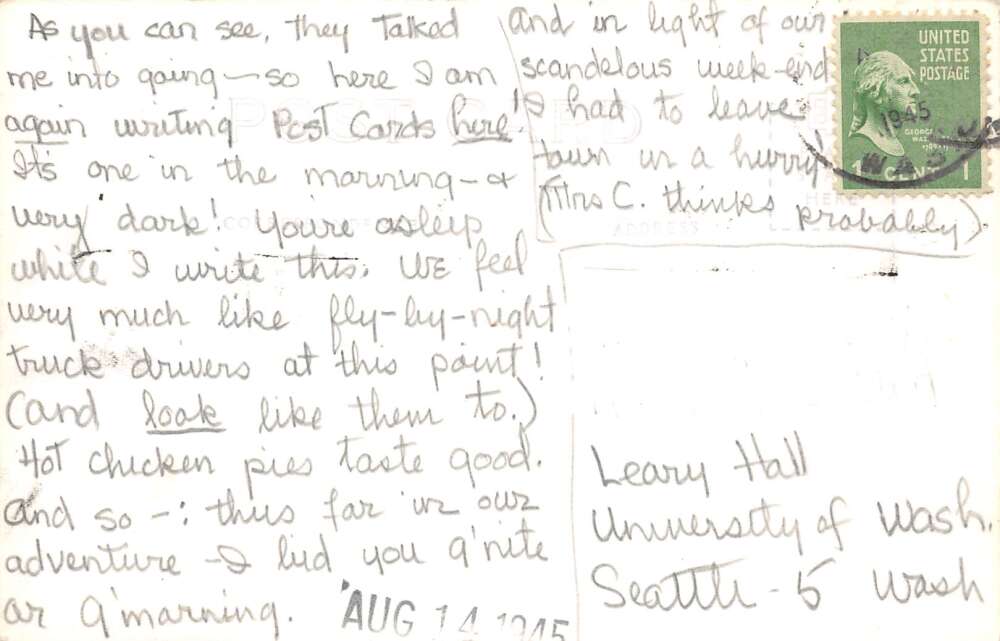 As you can see, they Talked
me into going — so here I am
again writing Post Cards here!
It's one in the morning — &
very dark! You're asleep
while I write this. We feel
very much like fly-by-night
truck drivers at this point!
(and look like them to.)
Hot chicken pies taste good.
and so -: thus far in our
adventure - I bid you g'nite
or g'morning.
and in light of our
scandelous week-end
I had to leave
town in a hurry!
(Mrs C. thinks probably).
UNITED
STATES
POSTAGE
1945
GEORGE
1 CENT 1
WASH
POST CARD
ADDRESS
HERE
Leary Hall
University of Wash.
Seattle - 5 Wash
AUG 14 1945